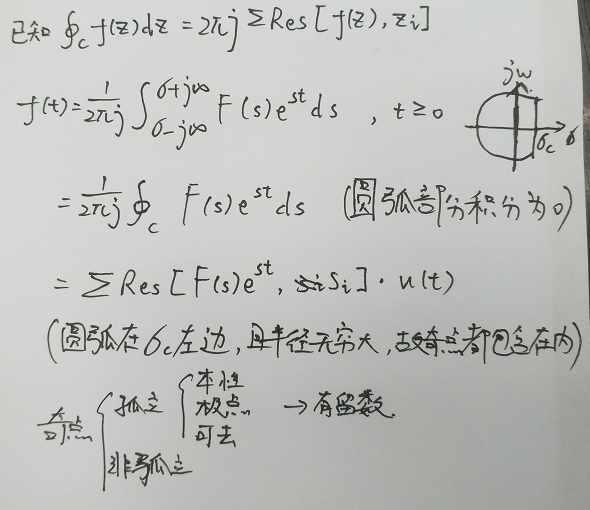 已知 ∮_c f(z)dz = 2πj ΣRes[f(z), z_i]
f(t) = 1/2πj ∫_{σ-j∞}^{σ+j∞} F(s)e^{st}ds , t≥0
jω
σ_c σ
= 1/2πj ∮_c F(s)e^{st}ds (圆弧部分积分为0)
= ΣRes[F(s)e^{st}, s_i]·u(t)
(圆弧在σ_c左边,且半径无穷大,故奇点都包含在内)
奇点 孤立 本性
极点 → 有留数
可去
非孤立